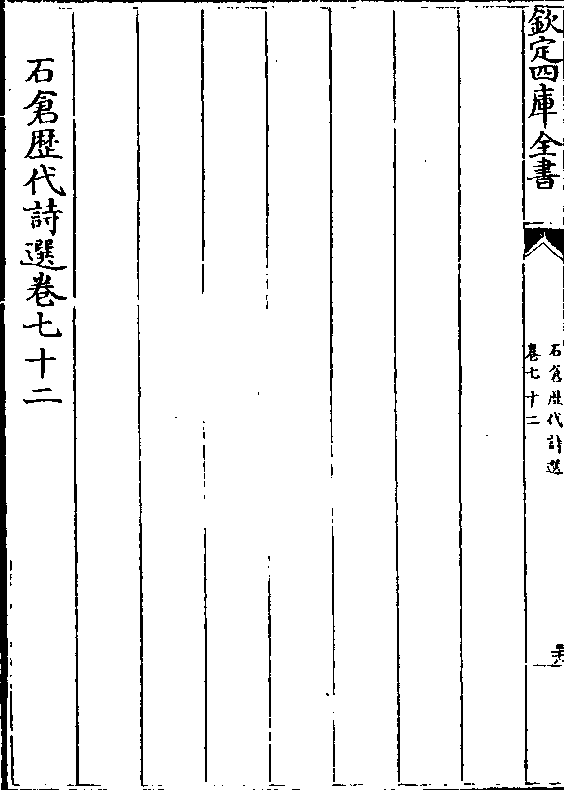 欽定四庫全書
石倉歷代詩選
卷七十二
石倉歷代詩選卷七十二